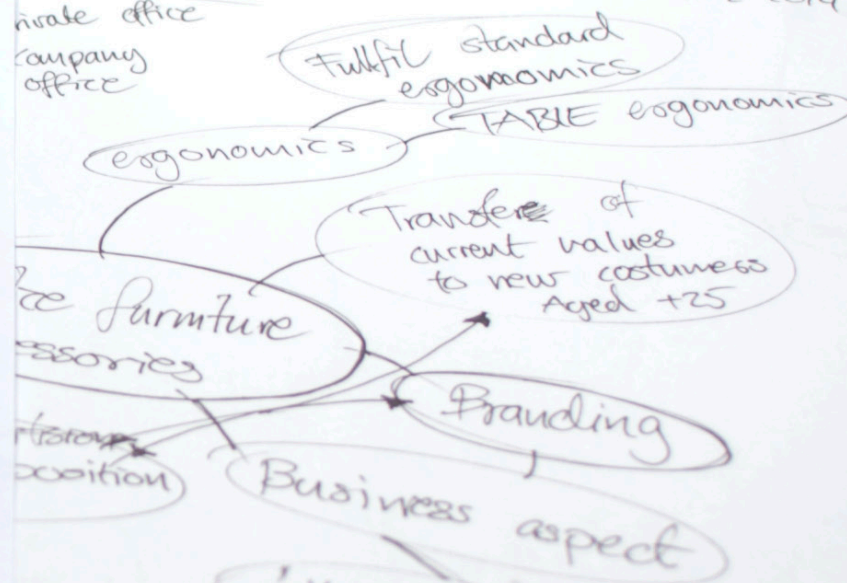 rivate office
ompany
office
Fullfil standard
ergonomics
TABLE ergonomics
ergonomics
Transfere of
current values
to new costumers
Aged +25
ce furniture
essories
Branding
position
Business aspect